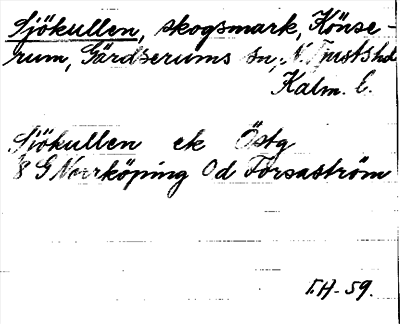 Sjökullen, skogsmark, Könse-
rum, Gärdserums sn, N. Tjustshd
Kalm. L.
Sjökullen ek Östg
8 G Norrköping Od Forsaström
T.H-59.